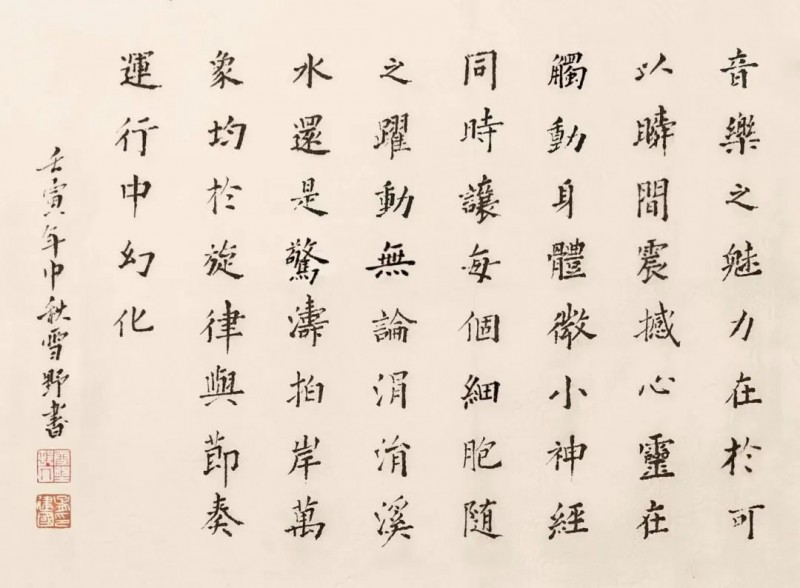 音樂之魅力在於可
以瞬間震撼心靈在
觸動身體微小神經
同時讓每個細胞随
之躍動無論涓涓溪
水還是驚濤拍岸萬
象均於旋律與節奏
運行中幻化
壬寅年中秋雪野書